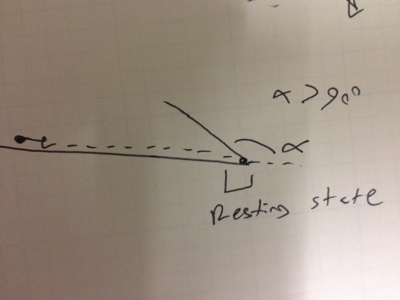 α > 90°
α
Resting state